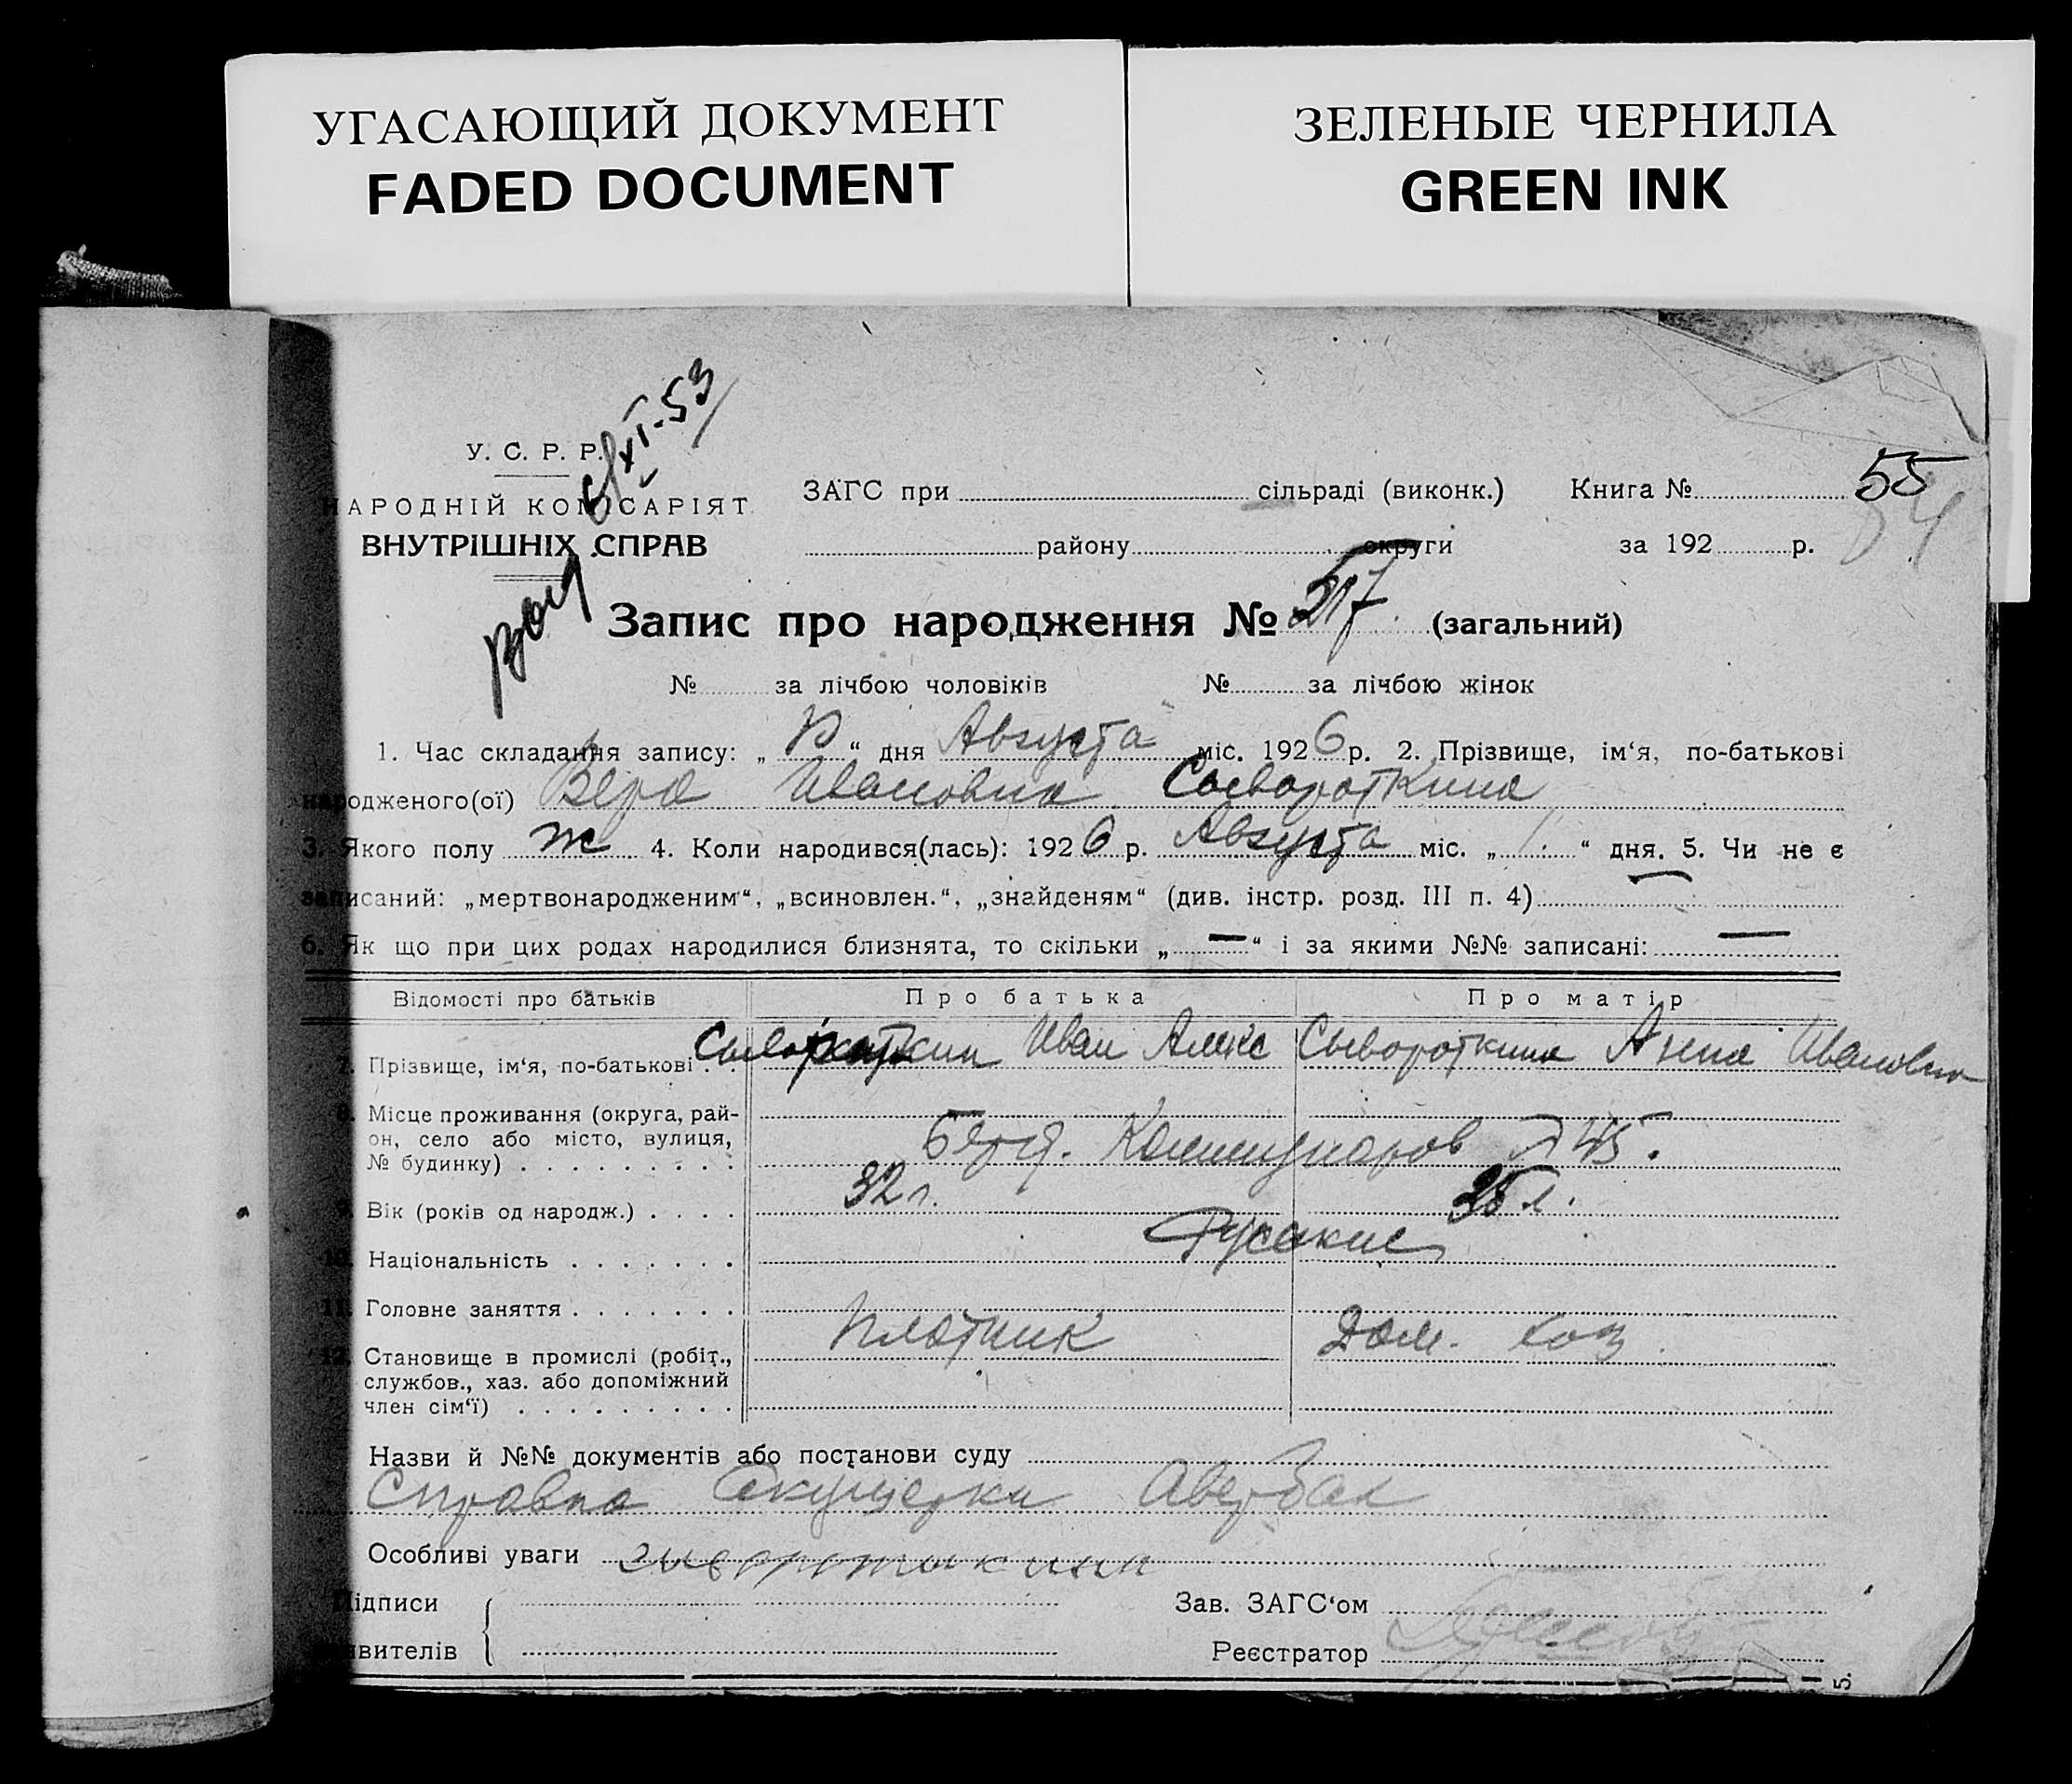 УГАСАЮЩИЙ ДОКУМЕНТ
FADED DOCUMENT
ЗЕЛЕНЫЕ ЧЕРНИЛА
GREEN INK
6/XI-53
У. С. Р. Р.
НАРОДНІЙ КОМІСАРІЯТ
ВНУТРІШНІХ СПРАВ
ЗАГС при сільраді (виконк.) Книга № 55
54
району округи за 192 р.
Запис про народження № 517 (загальний)
№ за лічбою чоловіків № за лічбою жінок
1. Час складання запису: „ “ дня Августа міс. 1926 р. 2. Прізвище, ім‘я, по-батькові
народженого(ої) Вера Ивановна Сывороткина
3. Якого полу ж 4. Коли народився(лась): 1926 р. Августа міс. „ 1. “ дня. 5. Чи не є
записаний: „мертвонародженим“, „всиновлен.“, „знайденям“ (див. інстр. розд. III п. 4) —
6. Як що при цих родах народилися близнята, то скільки „ — “ і за якими №№ записані: —
Відомості про батьків Про батька Про матір
7. Прізвище, ім‘я, по-батькові . . Сывороткин Иван Алекс Сывороткина Анна Ивановна
8. Місце проживання (округа, рай-
он, село або місто, вулиця,
№ будинку) . . . . . . . . . Бердя. Коммунаров 45.
9. Вік (років од народж.) . . . . 32 г. 35 л.
10. Національність . . . . . . . Русские
11. Головне заняття . . . . . . .
Плотник Дом. хоз.
12. Становище в промислі (робіт.,
службов., хаз. або допоміжний
член сім‘ї) . . . . . . . . .
Назви й №№ документів або постанови суду
Справка Акушерки Авербах
Особливі уваги Сывороткина
Підписи Зав. ЗАГС‘ом
явителів Реєстратор
5.